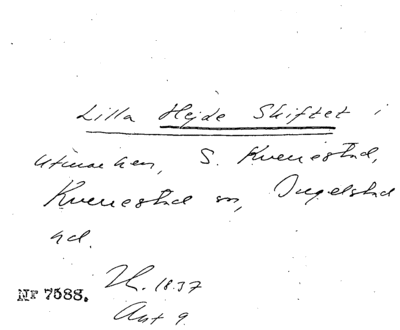 Lilla Hejde Skiftet i
Utmarken, S. Kverrestad,
Kverrestad sn, Ingelstad
hd.
Nr 7588.
1837
Akt 9